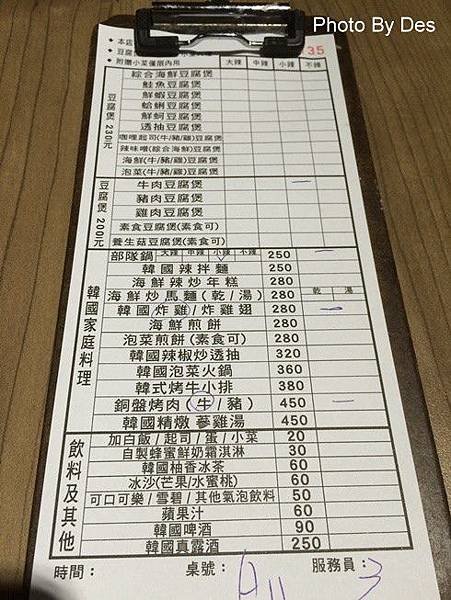 Photo By Des
• 本店
35
• 豆腐
• 附贈小菜僅限內用 大辣 中辣 小辣 不辣
豆腐煲230元
綜合海鮮豆腐煲
鮭魚豆腐煲
鮮蝦豆腐煲
蛤蜊豆腐煲
鮮蚵豆腐煲
透抽豆腐煲
咖哩起司(牛/豬/雞)豆腐煲
辣味噌(綜合海鮮)豆腐煲
海鮮(牛/豬/雞)豆腐煲
泡菜(牛/豬/雞)豆腐煲
豆腐煲200元
牛肉豆腐煲 一
豬肉豆腐煲
雞肉豆腐煲
素食豆腐煲(素食可)
養生菇豆腐煲(素食可)
韓國家庭料理
部隊鍋 大辣 中辣 小辣 不辣 250 一
韓國辣拌麵 250
海鮮辣炒年糕 280
海鮮炒馬麵(乾/湯) 280 乾 湯
韓國炸雞/炸雞翅 280 一
海鮮煎餅 280
泡菜煎餅(素食可) 280
韓國辣椒炒透抽 320
韓國泡菜火鍋 360
韓式烤牛小排 380
銅盤烤肉(牛/豬) 450 一
韓國精燉蔘雞湯 450
飲料及其他
加白飯/起司/蛋/小菜 20
自製蜂蜜鮮奶霜淇淋 30
韓國柚香冰茶 60
冰沙(芒果/水蜜桃) 60
可口可樂/雪碧/其他氣泡飲料 50
蘋果汁 60
韓國啤酒 90
韓國真露酒 250
時間： 桌號： 服務員：3